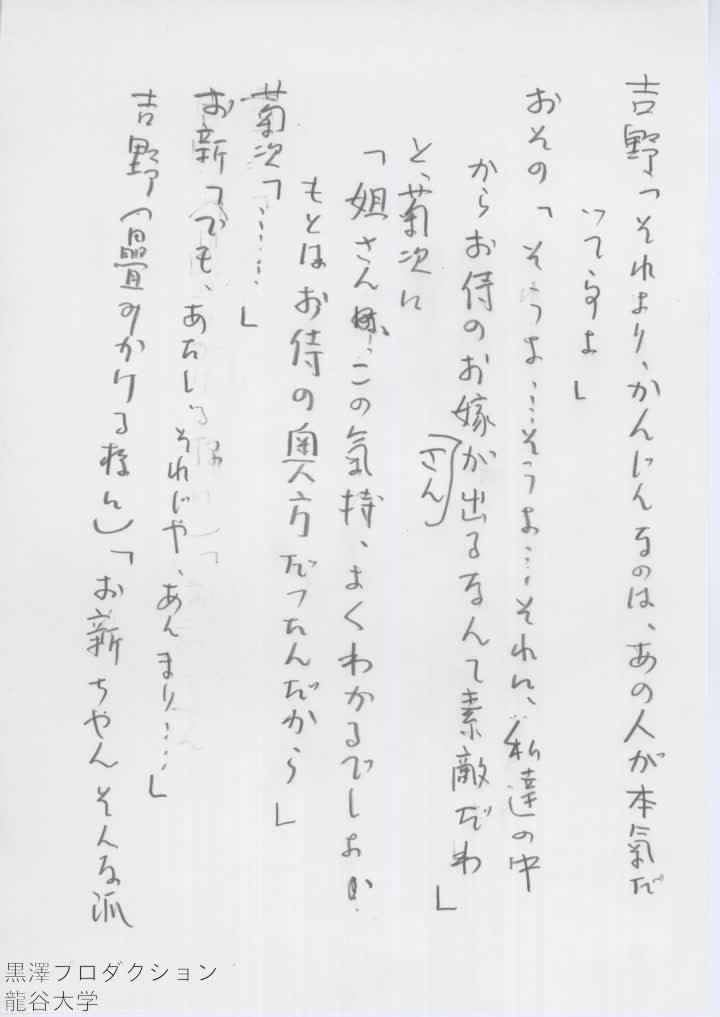 吉野「それより、かんじんなのは、あの人が本氣だ
ってことよ」
おその「そうよ……そうよ……それに、私達の中
からお侍のお嫁さんが出るなんて素敵だわ」
と、菊次に
「姐さん、この気持、よくわかるでしょ
もとはお侍の奥方だったんだから」
菊次「……」
お新「（でも、あたし、それじゃ、あんまり……」
吉野（畳みかける様に）「お新ちゃんそんな派
黒澤プロダクション
龍谷大学